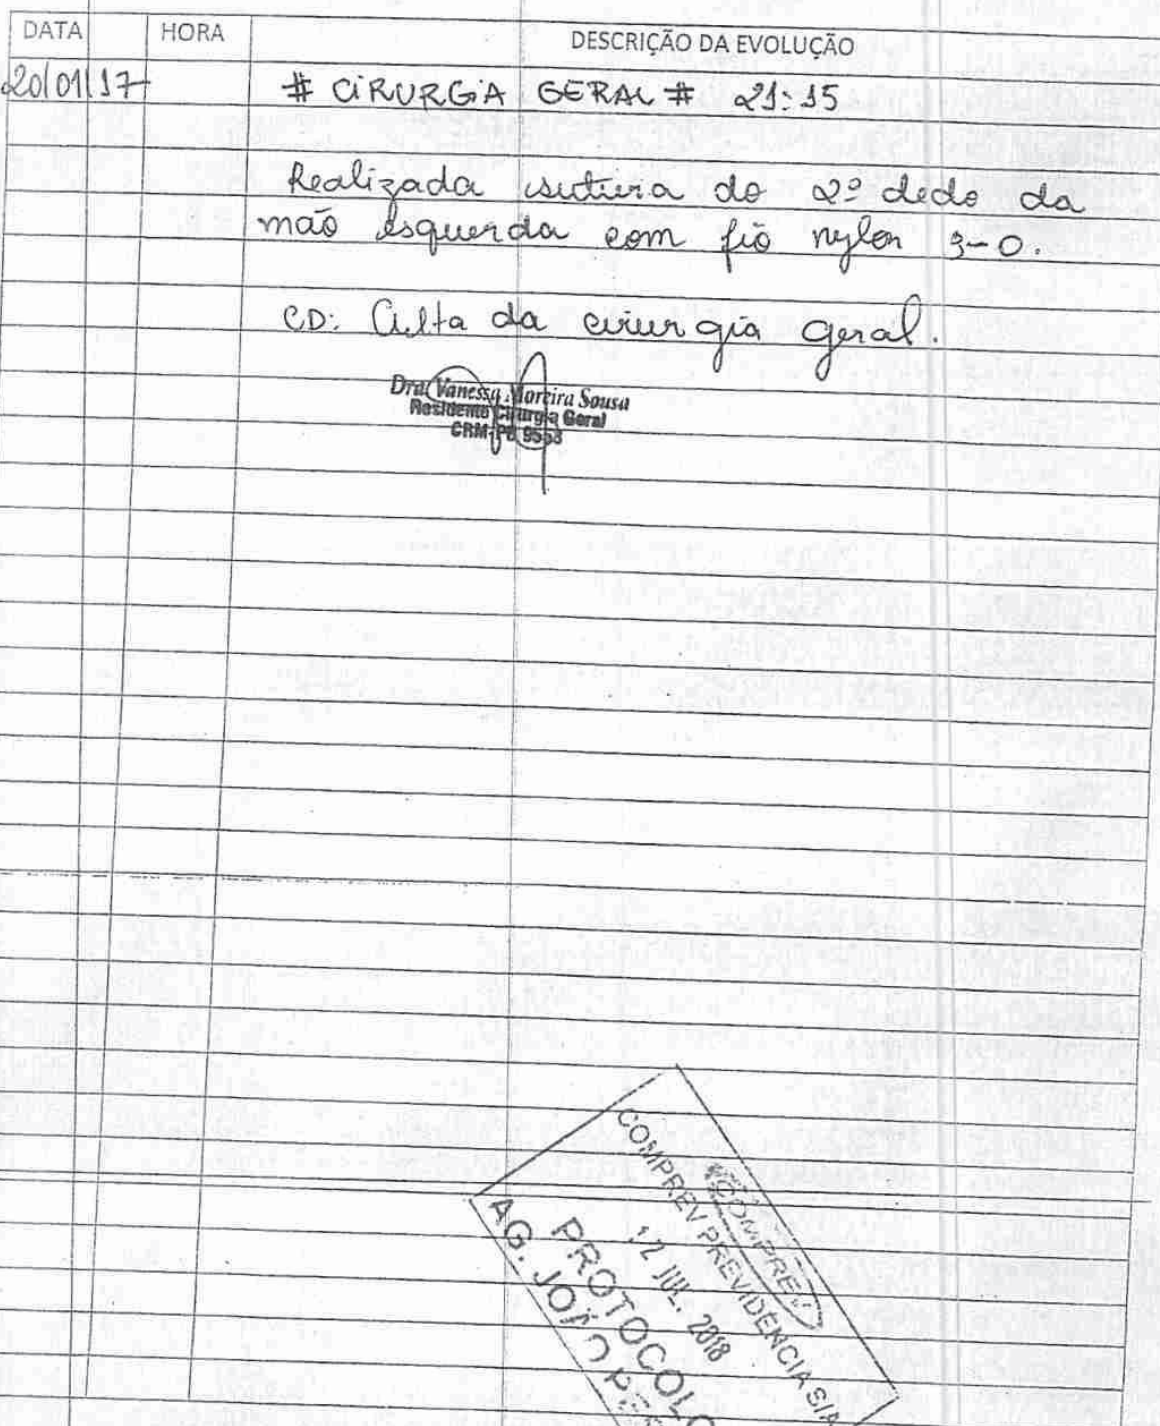 DATA HORA DESCRIÇÃO DA EVOLUÇÃO
20/01/17 # CIRURGIA GERAL # 21:15
Realizada sutura do 2º dedo da
mão esquerda com fio nylon 3-0.
CD: Alta da cirurgia geral.
Dra Vanessa Moreira Sousa
Residente Cirurgia Geral
CRM-PB
COMPREV
COMPREV PREVIDENCIA S/A
12 JUL. 2018
PROTOCOLO
AG. JOÃO